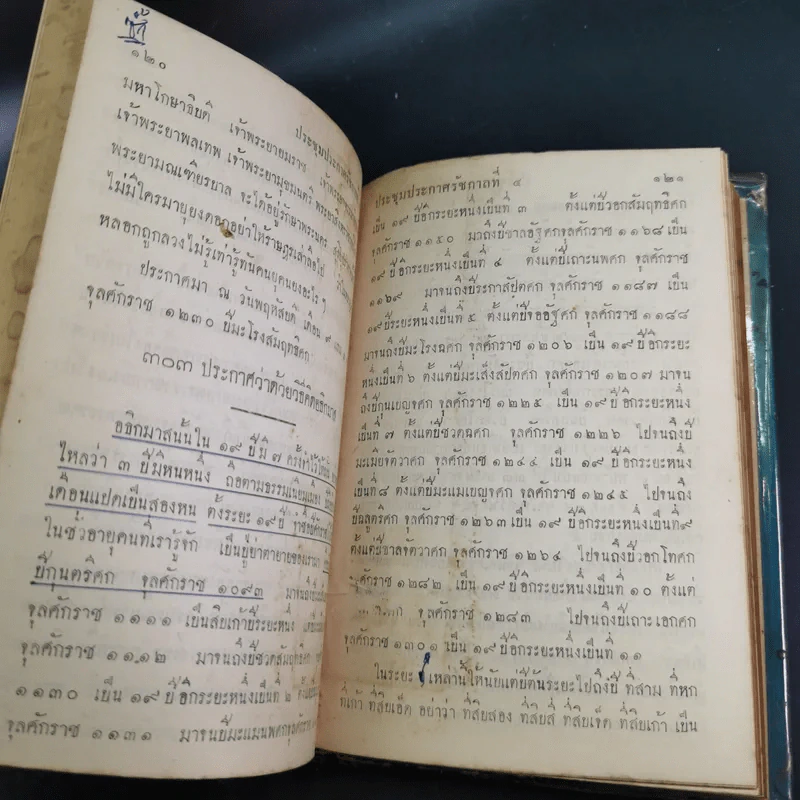 ๑๒๐
ประชุมประกาศ
มหาโกษาธิบดี เจ้าพระยายมราช
เจ้าพระยาพลเทพ เจ้าพระยามุขมนตรี
พระยามณเฑียรบาล จะได้อยู่รักษาพระนคร
ไม่มีใครมายุยงดอกอย่าให้ราษฎรเล่าลือไป
หลอกถูกลวงไม่รู้เท่ารู้ทันคนยุคนยงอะไร ๆ
ประกาศมา ณ วันพฤหัสบดี เดือน ๙
จุลศักราช ๑๒๓๐ ปีมะโรงสัมฤทธิศก
๓๐๓ ประกาศว่าด้วยวิธีคิดอธิกมาศ
อธิกมาสนั้นใน ๑๙ ปีมี ๗ ครั้ง
ไหลว่า ๓ ปีมีหนหนึ่ง ถือตามธรรมเนียมเมือง
เดือนแปดเป็นสองหน ตั้งระยะ ๑๙ ปี
ในชั่วอายุคนที่เรารู้จัก เป็นปู่ย่าตายายของเรามา
ปีกุนตรีศก จุลศักราช ๑๐๙๓
จุลศักราช ๑๑๑๑ เป็นสิบเก้าปีระยะหนึ่ง
จุลศักราช ๑๑๑๒ มาจนถึงปีชวดสัมฤทธิศก
๑๑๓๐ เป็น ๑๙ ปีอีกระยะหนึ่งเป็นที่ ๒
จุลศักราช ๑๑๓๑ มาจนปีมะแมนพศก
ประชุมประกาศรัชกาลที่ ๔ ๑๒๑
เป็น ๑๙ ปีอีกระยะหนึ่งเป็นที่ ๓ ตั้งแต่ปีวอกสัมฤทธิศก
จุลศักราช ๑๑๕๐ มาถึงปีขาลอัฐศกจุลศักราช ๑๑๖๘ เป็น
๑๙ ปีอีกระยะหนึ่งเป็นที่ ๔ ตั้งแต่ปีเถาะนพศก
๑๑๖๙ มาจนถึงปีระกาสัปตศก จุลศักราช ๑๑๘๗ เป็น
๑๙ ปีระยะหนึ่งเป็นที่ ๕ ตั้งแต่ปีจออัฐศก จุลศักราช ๑๑๘๘
มาจนถึงปีมะโรงฉศก จุลศักราช ๑๒๐๖ เป็น ๑๙ ปีอีกระยะ
หนึ่งเป็นที่ ๖ ตั้งแต่ปีมะเส็งสัปตศก จุลศักราช ๑๒๐๗ มาจน
ถึงปีกุนเบญจศก จุลศักราช ๑๒๒๕ เป็น ๑๙ ปีอีกระยะหนึ่ง
เป็นที่ ๗ ตั้งแต่ปีชวดฉศก จุลศักราช ๑๒๒๖ ไปจนถึงปี
มะเมียจัตวาศก จุลศักราช ๑๒๔๔ เป็น ๑๙ ปีอีกระยะหนึ่ง
เป็นที่ ๘ ตั้งแต่ปีมะแมเบญจศก จุลศักราช ๑๒๔๕ ไปจนถึง
ปีฉลูตรีศก จุลศักราช ๑๒๖๓ เป็น ๑๙ ปีอีกระยะหนึ่งเป็นที่ ๙
ตั้งแต่ปีขาลจัตวาศก จุลศักราช ๑๒๖๔ ไปจนถึงปีวอกโทศก
จุลศักราช ๑๒๘๒ เป็น ๑๙ ปีอีกระยะหนึ่งเป็นที่ ๑๐ ตั้งแต่
จุลศักราช ๑๒๘๓ ไปจนถึงปีเถาะเอกศก
จุลศักราช ๑๓๐๑ เป็น ๑๙ ปีอีกระยะหนึ่งเป็นที่ ๑๑
ในระยะ เหล่านี้ให้นับแต่ปีต้นระยะไปถึงปี ที่สาม ที่หก
ที่เก้า ที่สิบเอ็ด อย่าว่า ที่สิบสอง ที่สิบสี่ ที่สิบเจ็ด ที่สิบเก้า เป็น